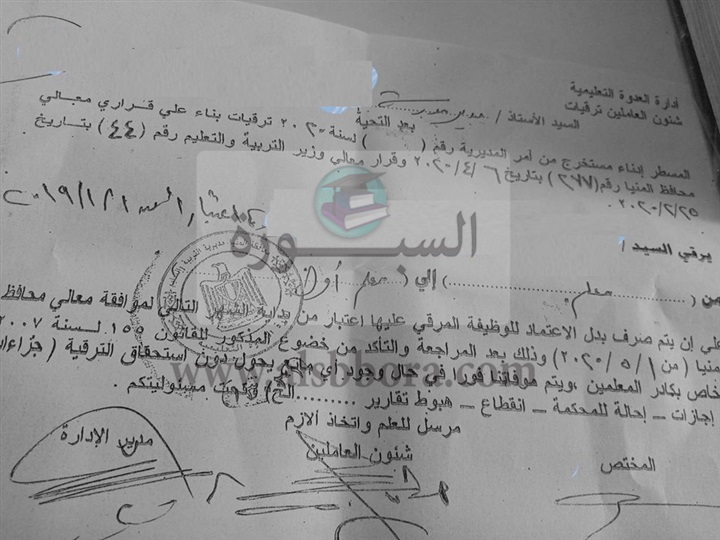 إدارة العدوة التعليمية
شئون العاملين ترقيات
السيد الأستاذ / مدير مدرسة
بعد التحية
المسطر إدناه مستخرج من أمر المديرية رقم ( ) لسنة ٢٠٢٠ ترقيات بناء علي قراري معالي
محافظ المنيا رقم (٢٧٧) بتاريخ ٢٠٢٠/٤/٦ وقرار معالي وزير التربية والتعليم رقم (٤٤) بتاريخ
٢٠٢٠/٢/٢٥ .
٢٠١٩/١/١
السبورة
يرقي السيد /
من (......معلم......) إلي (...معلم أول
علي إن يتم صرف بدل الاعتماد للوظيفة المرقي عليها اعتبار من بداية الشهر التالي لموافقة معالي محافظ
المنيا (من ٢٠٢٠/٥/١) وذلك بعد المراجعة والتأكد من خضوع المذكور للقانون ١٥٥ لسنة ٢٠٠٧
خاص بكادر المعلمين ،ويتم موفاتنا فورا في حال وجود أي مانع يحول دون استحقاق الترقية ( جزاءات
www.elsbbora.com
إجازات – إحالة للمحكمة – انقطاع – هبوط تقارير ..........الخ) وتحت مسئوليتكم .
مرسل للعلم واتخاذ ألازم
المختص شئون العاملين مدير الإدارة